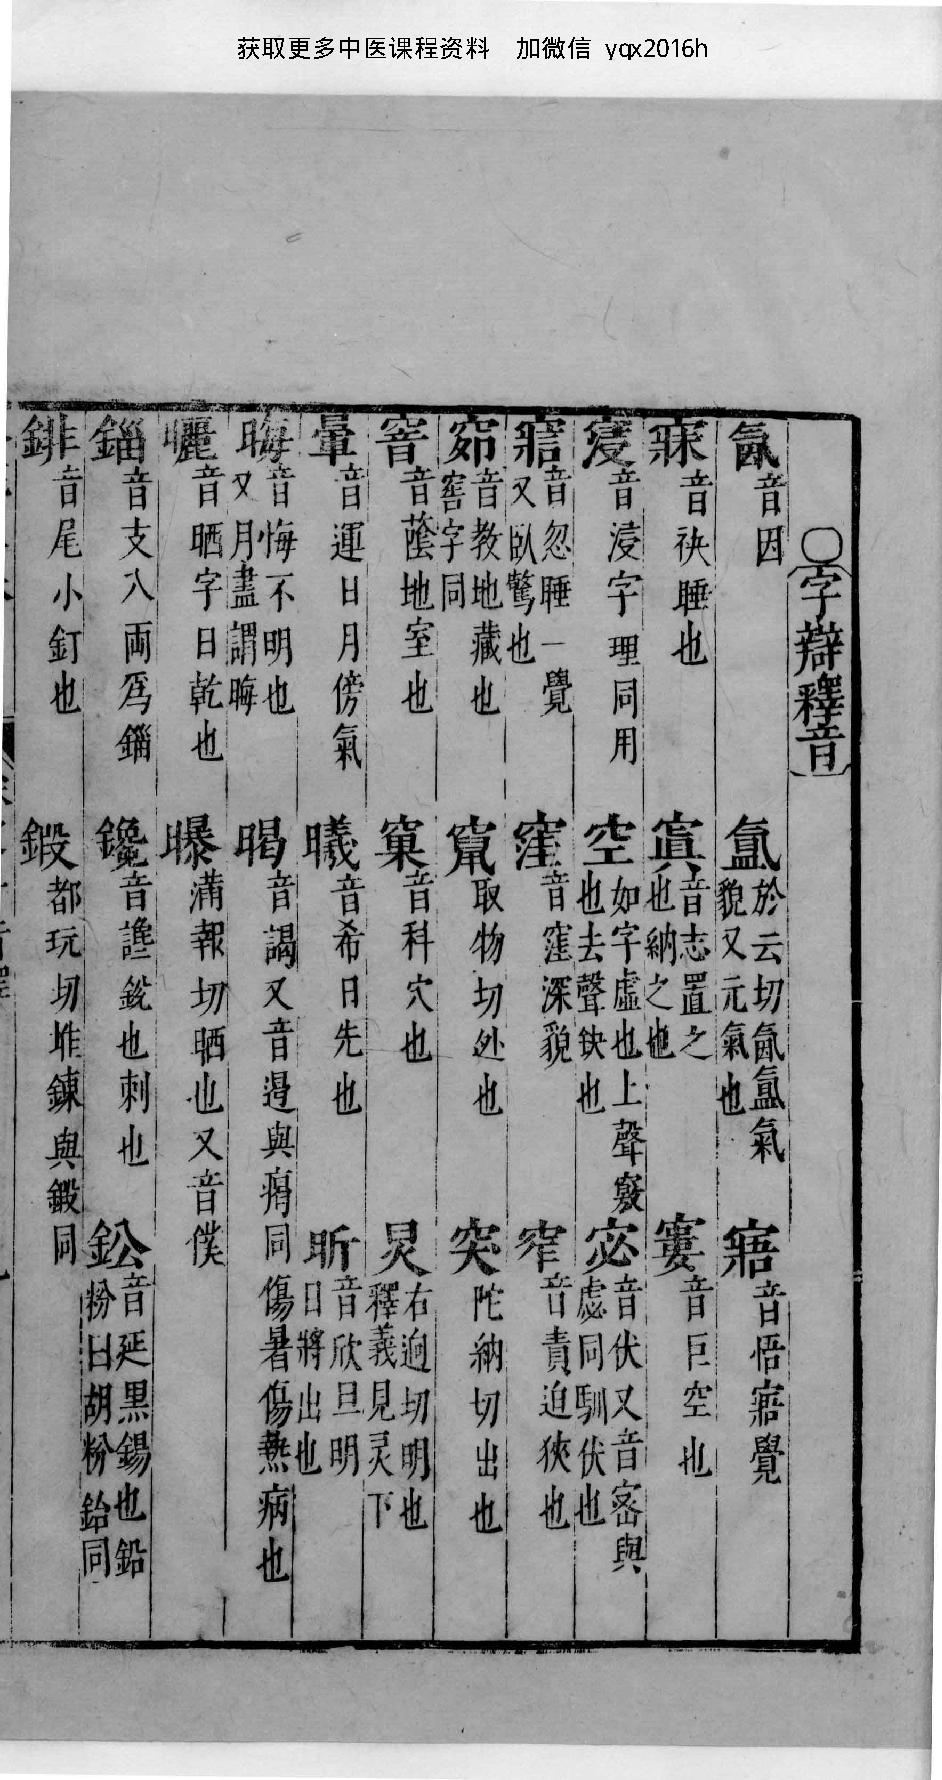 获取更多中医课程资料 加微信 yqx2016h
〇字辯釋音
氤音因 氳於云切氤氳氣貌又元氣也 寤音悟寤覺
寐音袂睡也 寘音志置之也納之也 窶音巨空也
寖音浸字理同用 空如字虛也上聲竅也去聲缺也 宓音伏又音密與虙同馴伏也
寣音忽睡一覺又臥驚也 窪音窪深貌 窄音責迫狹也
窌音教地藏也窖字同 取物切外也 突陀納切出也
窨音蔭地室也 窠音科穴也 炅右迥切明也釋義見灵下
暈音運日月傍氣 曦音希日先也 昕音欣旦明日將出也
晦音悔不明也又月盡謂晦 暍音謁又音遏與㾝同傷暑傷熱病也
曬音晒字日乾也 曝蒲報切晒也又音僕
錙音支八兩為錙 鑱音讒銳也刺也 鈆音延黑錫也鉛粉曰胡粉鈶同
音尾小釘也 鍛都玩切堆鍊與鍛同